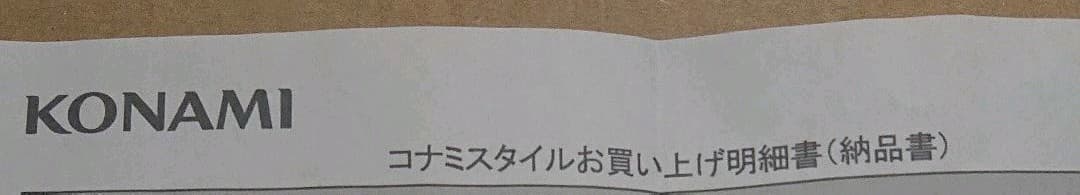 KONAMI
コナミスタイルお買い上げ明細書(納品書)